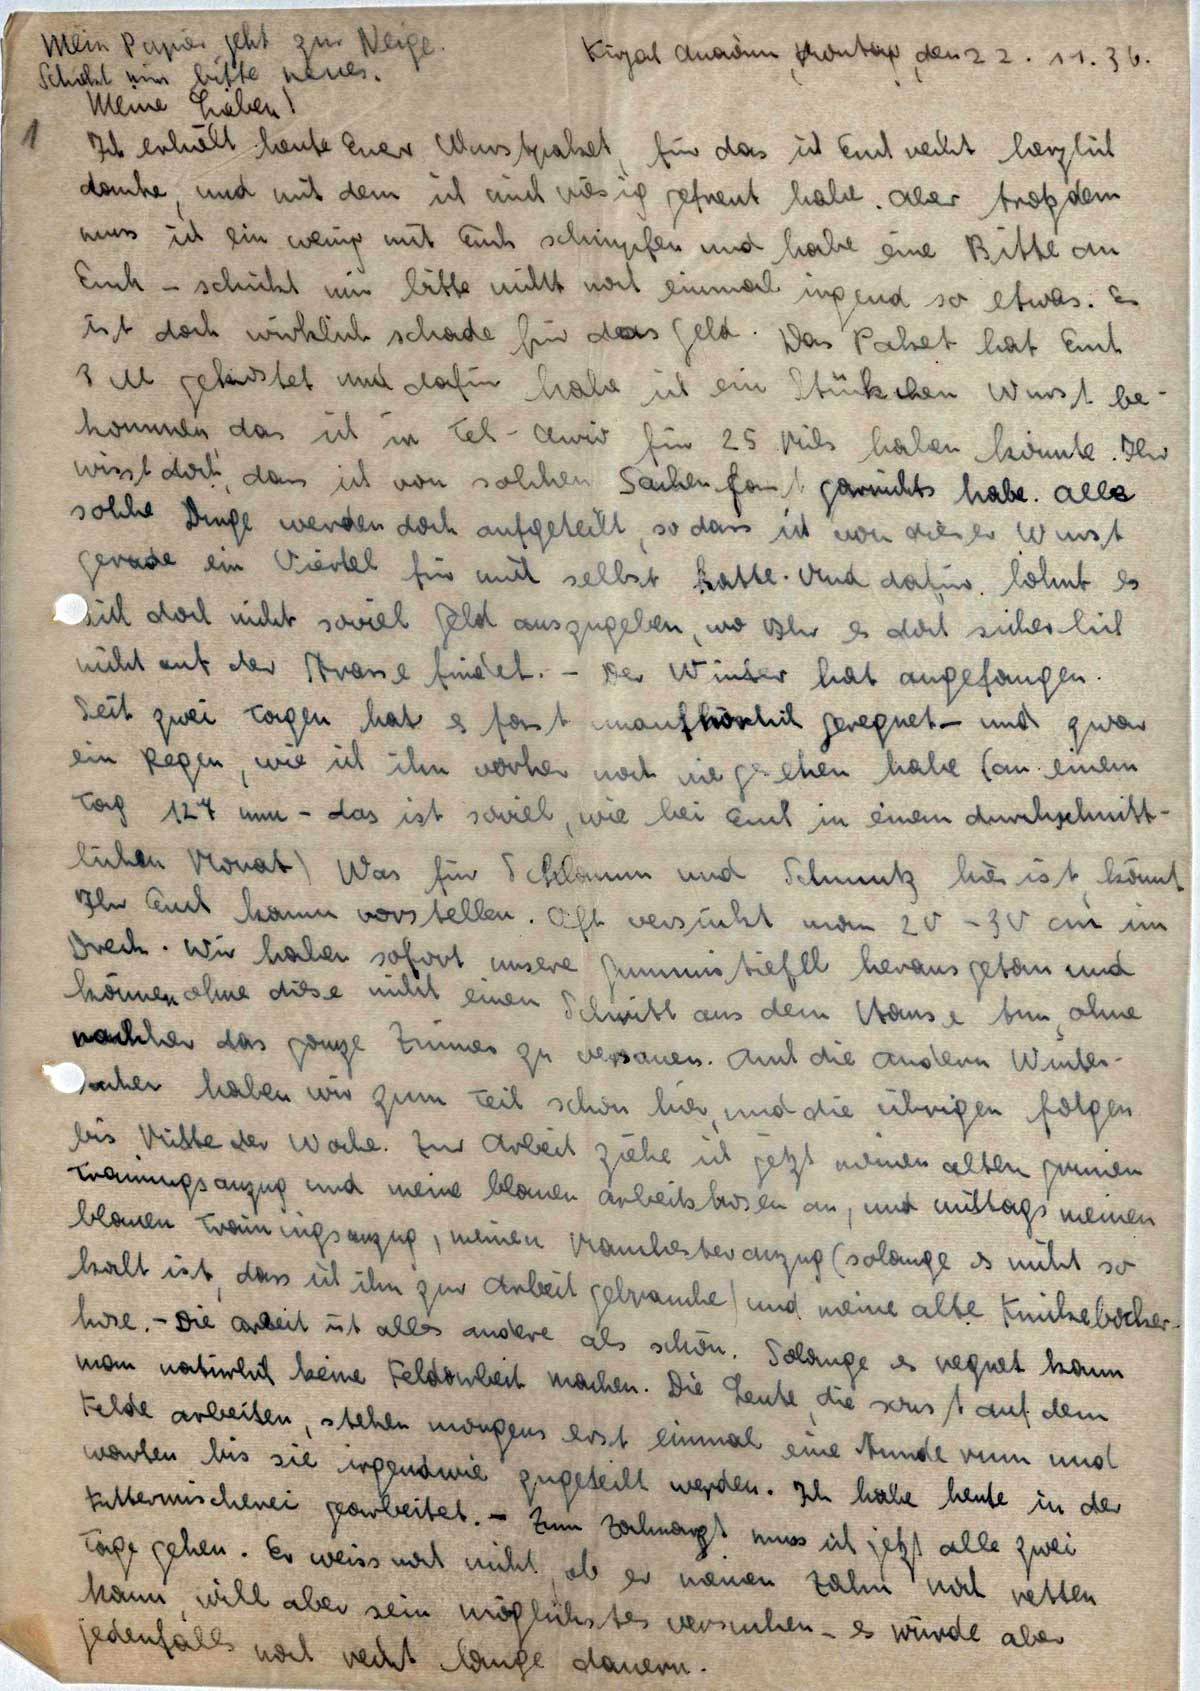 Mein Papier geht zur Neige.
Schickt mir bitte neues.
Kirjat Anavim, Montag, den 22. 11. 36.
Meine Lieben!
1
Ich erhielt heute Euer Wurstpaket, für das ich Euch recht herzlich
danke, und mit dem ich mich riesig gefreut habe. Aber trotzdem
muss ich ein wenig mit Euch schimpfen und habe eine Bitte an
Euch – schickt mir bitte nicht noch einmal irgend so etwas. Es
ist doch wirklich schade für das Geld. Das Paket hat Euch
3 M gekostet und dafür habe ich ein Stückchen Wurst be-
kommen, das ich in Tel-Awiw für 25 Mils haben könnte. Ihr
wisst doch, dass ich von solchen Sachen fast garnichts habe. Alle
solche Dinge werden doch aufgeteilt, so dass ich von dieser Wurst
gerade ein Viertel für mich selbst hatte. Und dafür lohnt es
sich doch nicht soviel Geld auszugeben, wo Ihr es dort sicherlich
nicht auf der Strasse findet. – Der Winter hat angefangen.
Seit zwei Tagen hat es fast unaufhörlich geregnet – und zwar
ein Regen, wie ich ihn vorher noch nie gesehen habe (an einem
Tag 127 mm – das ist soviel, wie bei Euch in einem durchschnitt-
lichen Monat) Was für Schlamm und Schmutz hier ist, könnt
Ihr Euch kaum vorstellen. Oft versinkt man 20 – 30 cm im
Dreck. Wir haben sofort unsere Gummistiefel herausgetan und
können ohne diese nicht einen Schritt aus dem Hause tun, ohne
nachher das ganze Zimmer zu versauen. Auch die andern Winter-
sachen haben wir zum Teil schon hier, und die übrigen folgen
bis Mitte der Woche. Zur Arbeit ziehe ich jetzt meinen alten grünen
Trainingsanzug und meine blauen Arbeitshosen an, und mittags meinen
blauen Trainingsanzug, meinen Manchesteranzug (solange es nicht so
kalt ist, dass ich ihn zur Arbeit gebrauche) und meine alte Knickebocker-
hose. – Die Arbeit ist alles andere als schön. Solange es regnet kann
man natürlich keine Feldarbeit machen. Die Leute, die sonst auf dem
Felde arbeiten, stehen morgens erst einmal eine Stunde rum und
warten bis sie irgendwie zugeteilt werden. Ich habe heute in der
Futtermischerei gearbeitet. – Zum Zahnarzt muss ich jetzt alle zwei
Tage gehen. Er weiss noch nicht, ob er meinen Zahn noch retten
kann, will aber sein möglichstes versuchen – es würde aber
jedenfalls noch recht lange dauern.